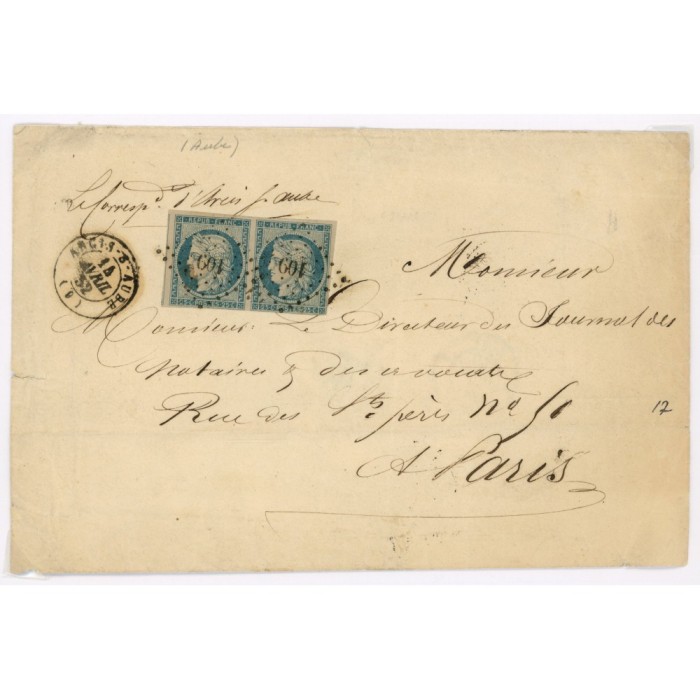 (Aube)
Le Correspd. d'Arcis s. aube
REPUB. FRANC. REPUB. FRANC.
109 109
25 C. 25 C. 25 C. 25 C.
ARCIS-S-AUBE
15
AVRIL
52
(9)
Monsieur
Monsieur Le Directeur des Journal des
notaires & des avocats
Rue des Sts pères No 50
17
A Paris